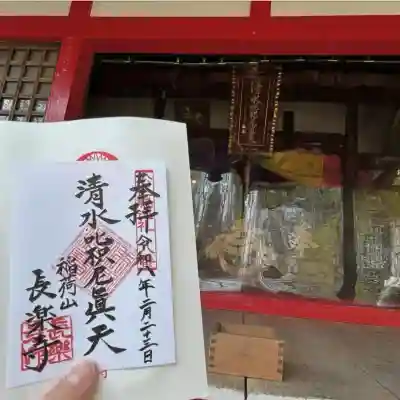 奉拝
令和八年二月二十三日
清水吒枳尼眞天
稲荷山
長楽寺